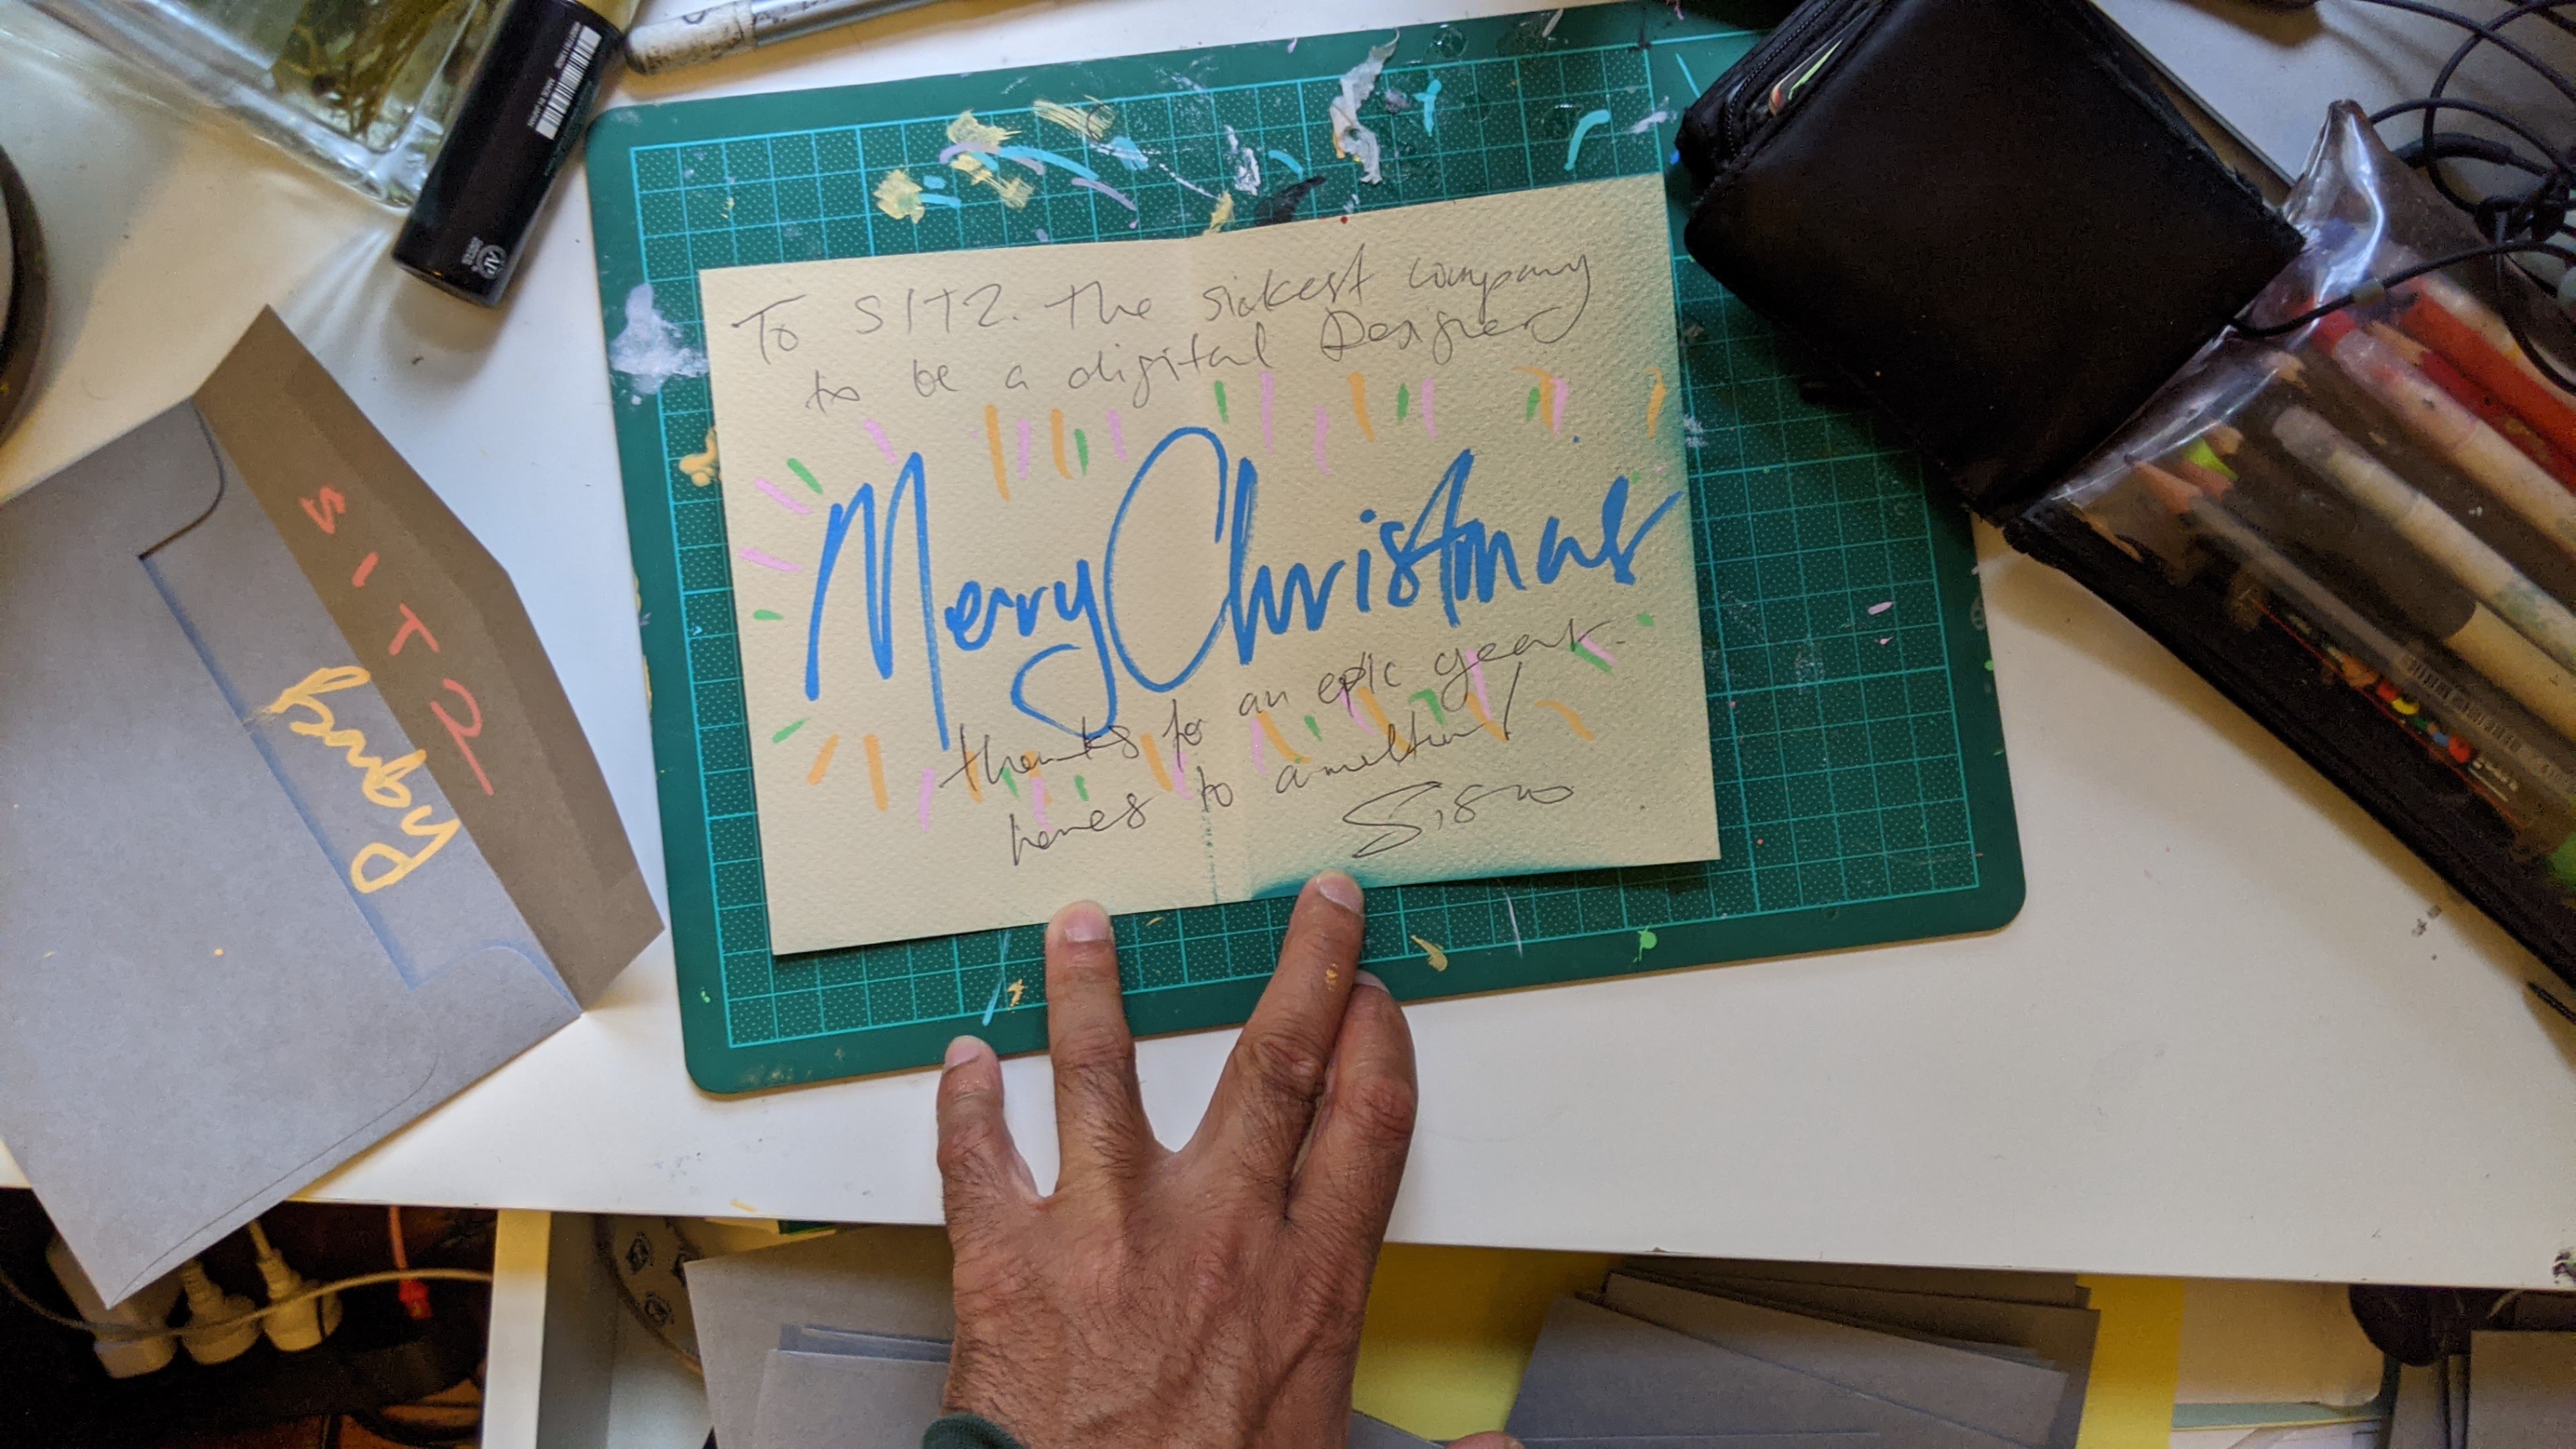 To SITZ. The sickest company
to be a digital Designer
Merry Christmas
thanks for an epic year.
heres to
Sisno
SITZ